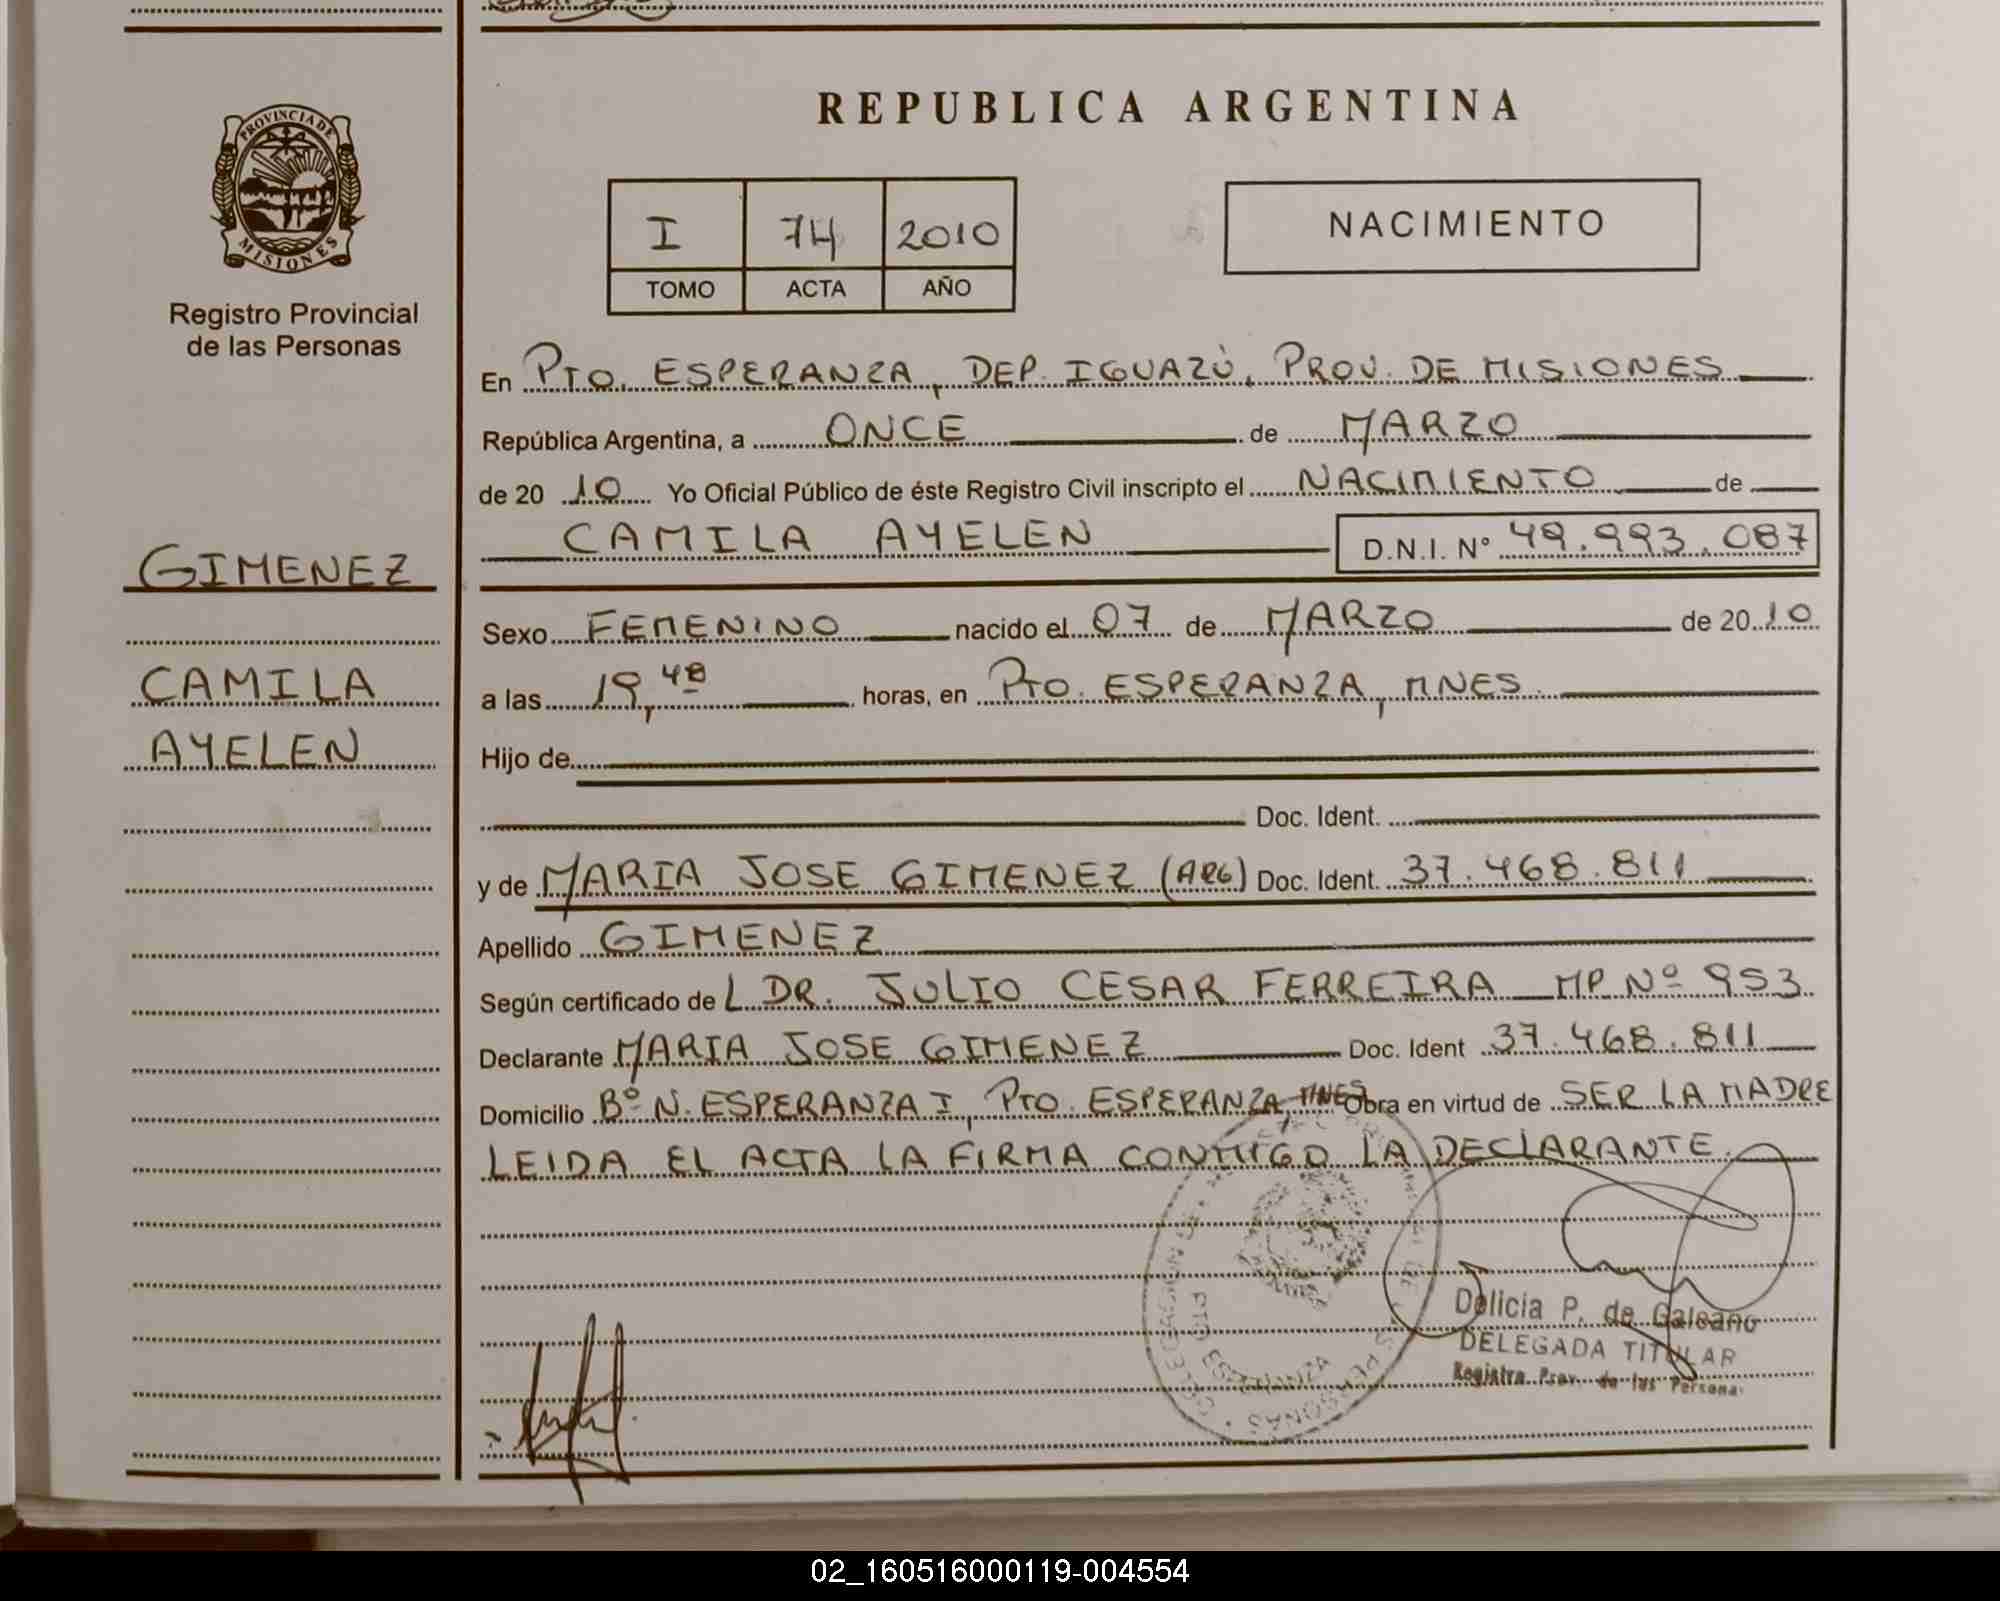 PROVINCIA DE
MISIONES
Registro Provincial
de las Personas
GIMENEZ
CAMILA
AYELEN
REPUBLICA ARGENTINA
I 74 2010
TOMO ACTA AÑO
NACIMIENTO
En PTO. ESPERANZA, DEP. IGUAZÚ, PROV. DE MISIONES
República Argentina, a ONCE de MARZO
de 20 10 Yo Oficial Público de éste Registro Civil inscripto el NACIMIENTO de
CAMILA AYELEN D.N.I. N° 49.993.087
Sexo FEMENINO nacido el 07 de MARZO de 20 10
a las 19,48 horas, en PTO. ESPERANZA, MNES.
Hijo de
Doc. Ident.
y de MARIA JOSE GIMENEZ (ARG) Doc. Ident. 37.468.811
Apellido GIMENEZ
Según certificado de L DR. JULIO CESAR FERREIRA MP Nº 953
Declarante MARIA JOSE GIMENEZ Doc. Ident 37.468.811
Domicilio Bº N. ESPERANZA I, PTO. ESPERANZA, MNES Obra en virtud de SER LA MADRE
LEIDA EL ACTA LA FIRMA CONMIGO LA DECLARANTE.
PTO ESPERANZA
Delicia P. de Galeano
DELEGADA TITULAR
Registro Prov. de las Personas
02_160516000119-004554